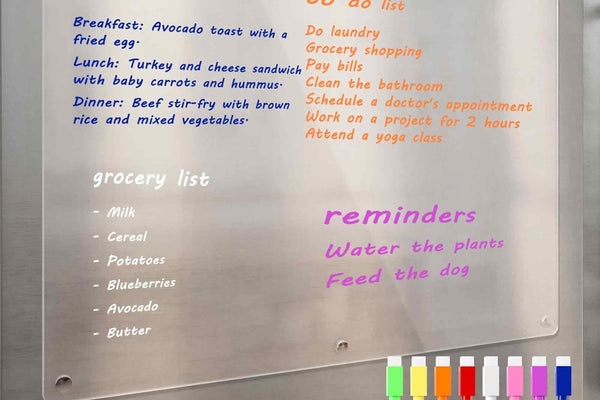 Breakfast: Avocado toast with a
fried egg.
Lunch: Turkey and cheese sandwich
with baby carrots and hummus.
Dinner: Beef stir-fry with brown
rice and mixed vegetables.
to do list
Do laundry
Grocery shopping
Pay bills
Clean the bathroom
Schedule a doctor's appointment
Work on a project for 2 hours
Attend a yoga class
grocery list
- Milk
- Cereal
- Potatoes
- Blueberries
- Avocado
- Butter
reminders
Water the plants
Feed the dog